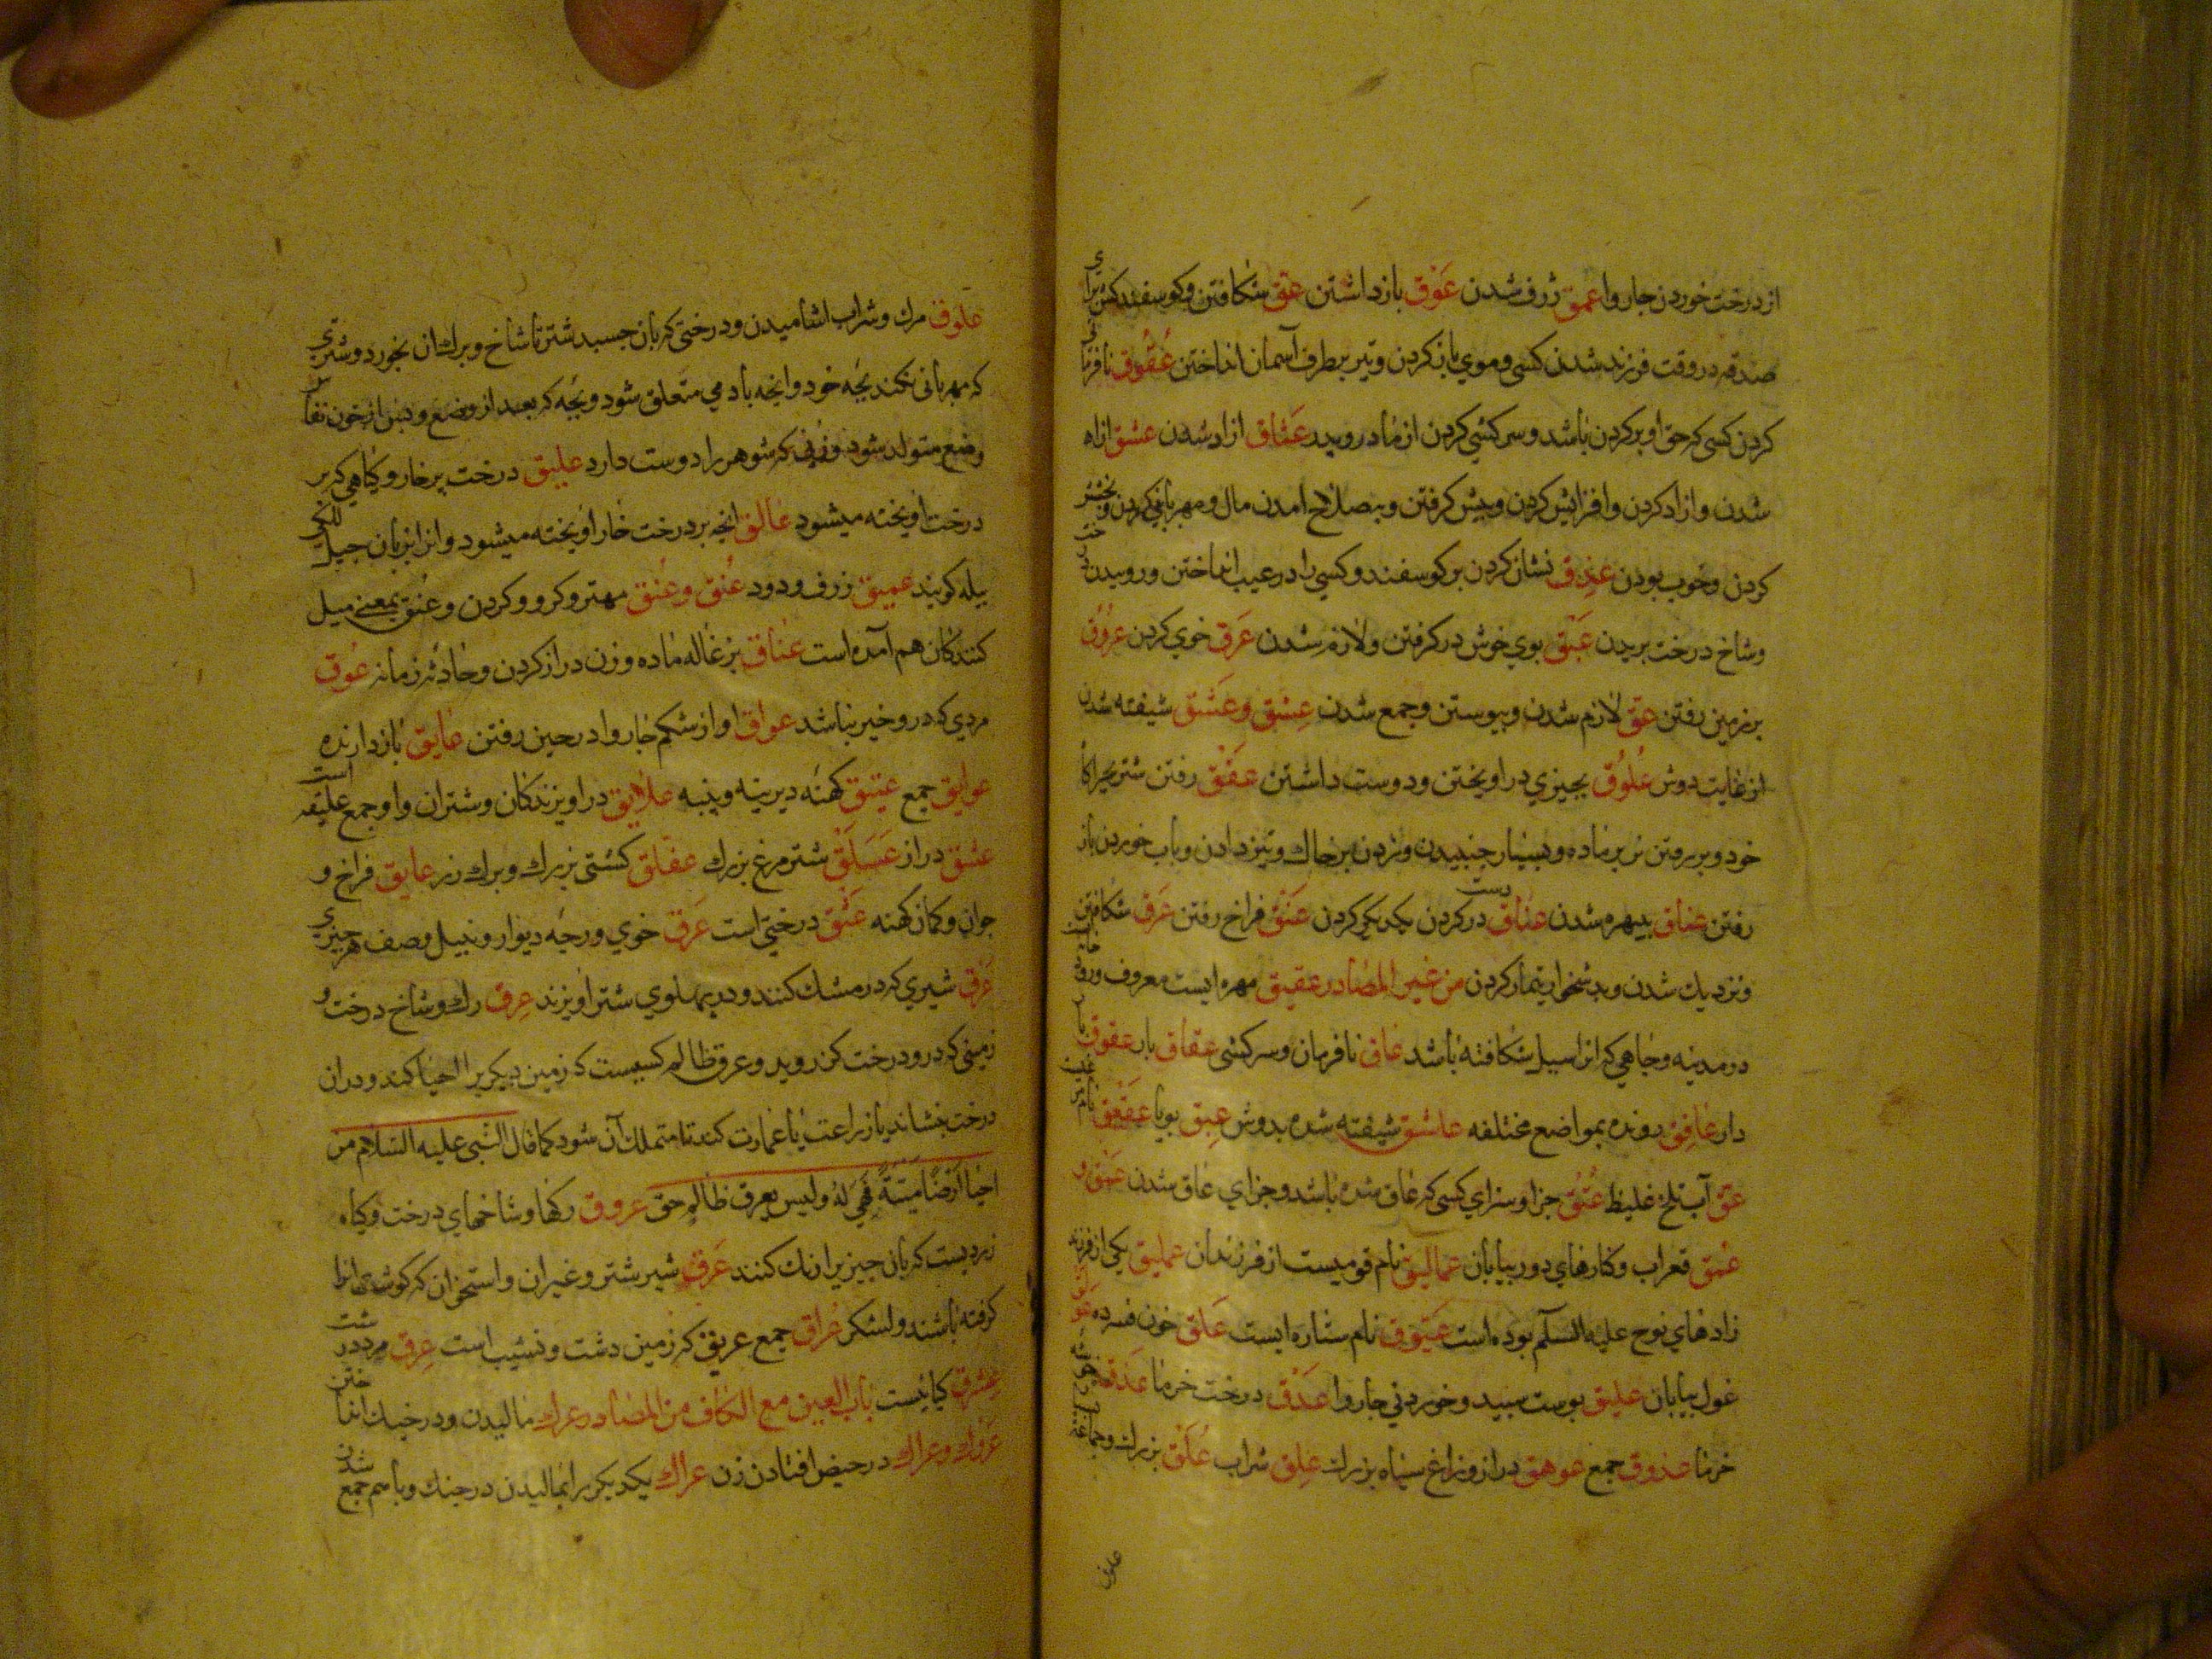 از درخت خوردن جاروا عمق ژرف شدن عَوْق باز داشتن عق شکافتن و کوسفند کش برای
صدقه در وقت فرزند شدن کسی و موی باز کردن و تیر بطرف آسمان انداختن عُقُوق نافرما
کردن کسی که حق او بر کردن باشد و سرکشی کردن از مادر و پدر عتاق ازاد شدن عتق ازاد
شدن و ازاد کردن و افزایش کردن و پیش کرفتن و بصلاح امدن مال و مهربانی کردن و
کردن و خوب بودن عذق نشان کردن بر کوسفند و کسی را در عیب انداختن و روییدن
و شاخ درخت بریدن عَبَق بوی خوش در کرفتن و لازم شدن عَرَق خوی کردن عروق
بر زمین رفتن عق لازم شدن و پیوستن و جمع شدن عِشق و عَشَق شیفته شدن
از غایت دوش عُلُوق بچیزی در اویختن و دوست داشتن عَفْق رفتن شتر بچراکا
خود و بر رفتن نر بر ماده و بسیار جنبیدن و زدن بر خاك و تیز دادن و باب خوردن باز
رفتن عناق بیبهره شدن عناق دست در کردن یکدیکر کردن عَنَق فراخ رفتن عَرَق شکافتن
و نزدیك شدن و بد شخوار تیمار کردن من غیر المصادر عقیق مهره ایست معروف و رود
در مدینه و جاهی که انرا سیل شکافته باشد عاق نافرمان و سرکشی عقاق بار عقوق
دار عافق رونده بمواضع مختلفه عاشق شیفته شده بدوش عبق بویا عقعق
عق آب تلخ غلیظ عُقُق جزا و سزای کسی که عاق شده باشد و جزای عاق شدن عمق و
عُمق قعر اب و کنارهای دور بیابان عمالیق نام قومیست از فرزندان عملیق یکی از فرزند
زادهای نوح علیه السلم بوده است عَیّوق نام ستاره ایست عَلَق خون فسرده
غول بیابان علیق پوست سپید و خوردنی جاروا عَذق درخت خرما عذق خوشه
خرما عذوق جمع عوهق دراز و زاغ سیاه بزرك عِلق شراب عُلَق بزرك و جماعة
علوق
علوق مرك و شراب اشامیدن و درختی که بان جسبد شتر تا شاخ و برك ان بخورد و شتری
که مهربانی نکند بجه خود و انجه بادمی متعلق شود و بجه که بعد از وضع و پس از خون نفا
وضع متولد شود و زنی که شوهر را دوست دارد علیق درخت پر خار و کیاهی که بر
درخت اویخته میشود عالق انجه بر درخت خار اویخته میشود و انرا بزبان جیل
بیله کویند عمیق ژرف و دود عُنق و عُنُق مهتر و کرو و کردن و عنق بمعنی میل
کنندکان هم آمده است عناق بزغاله ماده و زن دراز کردن و حادثه زمانه عُوق
مردی که در و خیر نباشد عواق اواز شکم جاروا در حین رفتن عایق باز دارنده
عوایق جمع عتیق کهنه دیرینه و پنبه علایق در اویزندکان و شتران و او جمع علیقه است
عشق دراز عَسَلَّق شتر مرغ بزرك عفلق کشتی بزرك و برك رز عایق فراخ و
جوان و کمان کهنه عَثَق درختی است عَرَق خوی و رجه دیوار و زنبیل و صف هر جیزی
عَرَق شیری که در مشك کنند و در پهلوی شتر اویزند عِرق رك و شاخ درخت و
زمینی که در و درخت کز روید و عرق ظالم کسیست که زمین دیکریرا احیا کند و دران
درخت بنشاند یا زراعت یا عمارت کند تا متملك آن شود کما قال النبی علیه السلام من
احیا ارضا میتة فهی له و لیس بعرق ظالم حق عروق رکها و شاخهای درخت و کیاه
زردیست که بان جیزیرا رنك کنند عَرق شیر شتر و غیر ان و استخوان که کوشتهای انرا
کرفته باشند و لشکر عُراق جمع عریق که زمین دشت و نشیب است عِرق مرد در
عشرق کیاهست باب العین مع الکاف من المصادر عرك مالیدن و در خبك انداختن
عروك و عراك در حیض افتادن زن عراك یکدیکر را بمالیدن در جنك و باهم جمع شدن